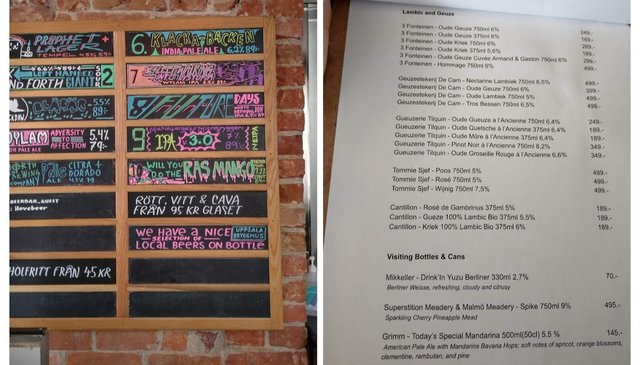 PROPHET
LAGER
TEMPEL 4.5% 59:-
LEFT HANDED
ND FORTH GIANT
2
55%
89:-
YLAM ADVERSITY TO AFFECTION
5.4%
79:-
PALE ALE
BREWING COMPANY
Pale CITRA DORADO
HOLFRITT FRÅN 45 KR
6. KLACKA-BACKEN
INDIA PALE ALE 6.2% 89:-
7
8
DAYS
9
IPA 3.0
WILL YOU DO THE RAS MANGO
RÖTT, VITT & CAVA
FRÅN 95 KR GLASET
WE HAVE A NICE
SELECTION OF
LOCAL BEERS ON BOTTLE
UPPSALA
BRYGGHUS
Lambic and Geuze
3 Fonteinen - Oude Geuze 750ml 6% 249.-
3 Fonteinen - Oude Geuze 375ml 6% 169.-
3 Fonteinen - Oude Kriek 750ml 6%
3 Fonteinen - Oude Kriek 375ml 5,6%
3 Fonteinen - Oude Geuze Cuvée Armand & Gaston 750ml 6% 299.-
3 Fonteinen - Hommage 750ml 6% 499.-
Geuzestekerij De Cam - Nectarine Lambiek 750ml 6,5% 499.-
Geuzestekerij De Cam - Oude Geuze 750ml 6% 499.-
Geuzestekerij De Cam - Oude Lambiek 750ml 5% 499.-
Geuzestekerij De Cam - Tros Bessen 750ml 6,5% 499.-
Gueuzerie Tilquin - Oude Gueuze à l'Ancienne 750ml 6,4% 249.-
Gueuzerie Tilquin - Oude Quetsche à l'Ancienne 375ml 6,4% 189.-
Gueuzerie Tilquin - Oude Mûre à l'Ancienne 375ml 6% 189.-
Gueuzerie Tilquin - Pinot Noir à l'Ancienne 750ml 8,2% 349.-
Gueuzerie Tilquin - Oude Groseille Rouge à l'Ancienne 6,6% 349.-
Tommie Sjef - Poos 750ml 5% 499.-
Tommie Sjef - Rosé 750ml 5% 499.-
Tommie Sjef - Wijnig 750ml 7,5% 499.-
Cantillon - Rosé de Gambrinus 375ml 5% 189.-
Cantillon - Gueuze 100% Lambic Bio 375ml 5.5% 189.-
Cantillon - Kriek 100% Lambic Bio 375ml 6% 189.-
Visiting Bottles & Cans
Mikkeller - Drink'In Yuzu Berliner 330ml 2,7% 70.-
Berliner Weisse, refreshing, cloudy and citrusy
Superstition Meadery & Malmö Meadery - Spike 750ml 9% 495.-
Sparkling Cherry Pineapple Mead
Grimm - Today's Special Mandarina 500ml(50cl) 5.5 % 145.-
American Pale Ale with Mandarina Bavaria Hops; soft notes of apricot, orange blossoms,
clementine, rambutan, and pine